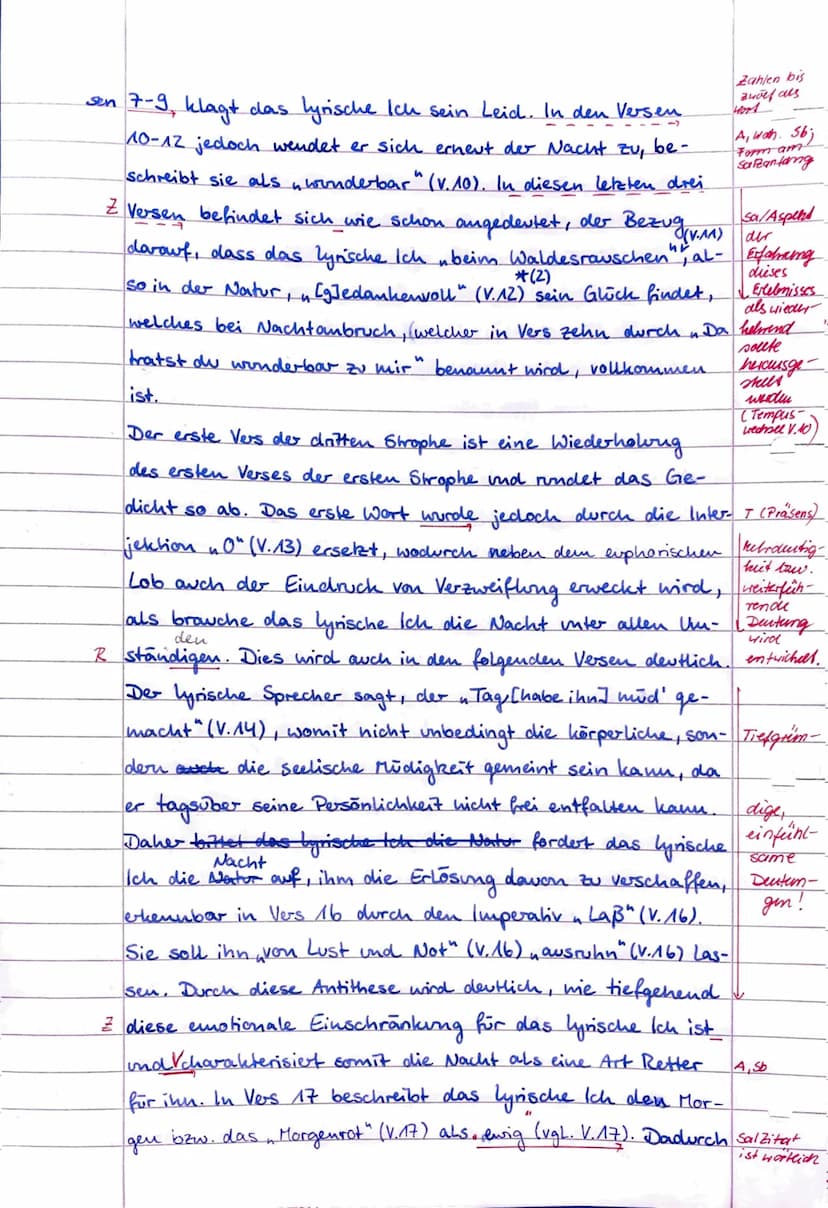 Zahlen bis
zwölf als
Wort
sen 7-9, klagt das lyrische Ich sein Leid. In den Versen
10-12 jedoch wendet er sich erneut der Nacht zu, be-
A, Wdh. Sb;
Form am
Satzanfang
schreibt sie als „wunderbar" (V.10). In diesen letzten drei
Z Versen befindet sich wie schon angedeutet, der Bezug
darauf, dass das lyrische Ich „beim Waldesrauschen" (V.11), al-
so in der Natur, „[g]edankenvoll" (V.12) *(2) sein Glück findet,
welches bei Nachtanbruch, (welcher in Vers zehn durch „Da
tratst du wunderbar zu mir" benannt wird, vollkommen
ist.
sa/Aspekt
der
Erfahrung
dieses
Erlebnisses
als wieder-
kehrend
sollte
herausge-
stellt
werden
(Tempus-
wechsel V.10)
Der erste Vers der dritten Strophe ist eine Wiederholung
des ersten Verses der ersten Strophe und rundet das Ge-
dicht so ab. Das erste Wort wurde jedoch durch die Inter-
T (Präsens)
jektion „O" (V.13) ersetzt, wodurch neben dem euphorischen
Lob auch der Eindruck von Verzweiflung erweckt wird,
als brauche das lyrische Ich die Nacht unter allen Um-
den
R ständigen. Dies wird auch in den folgenden Versen deutlich.
Mehrdeutig-
keit bzw.
weiterfüh-
rende
Deutung
wird
entwickelt.
Der lyrische Sprecher sagt, der „Tag [habe ihn] müd' ge-
macht" (V.14), womit nicht unbedingt die körperliche, son-
dern auch die seelische Müdigkeit gemeint sein kann, da
er tagsüber seine Persönlichkeit nicht frei entfalten kann.
Daher bittet das lyrische Ich die Natur fordert das lyrische
Nacht
Ich die Natur auf, ihm die Erlösung davon zu verschaffen,
erkennbar in Vers 16 durch den Imperativ „Laß" (V.16).
Tiefgrün-
dige,
einfühl-
same
Deutun-
gen!
Sie soll ihn „von Lust und Not" (V.16) „ausruhn" (V.16) las-
sen. Durch diese Antithese wird deutlich, wie tiefgehend
Z diese emotionale Einschränkung für das lyrische Ich ist
und V charakterisiert somit die Nacht als eine Art Retter
A, Sb
für ihn. In Vers 17 beschreibt das lyrische Ich den Mor-
gen bzw. das „Morgenrot" (V.17) als „ewig" (vgl. V.17). Dadurch
sa/Zitat
ist wörtlich